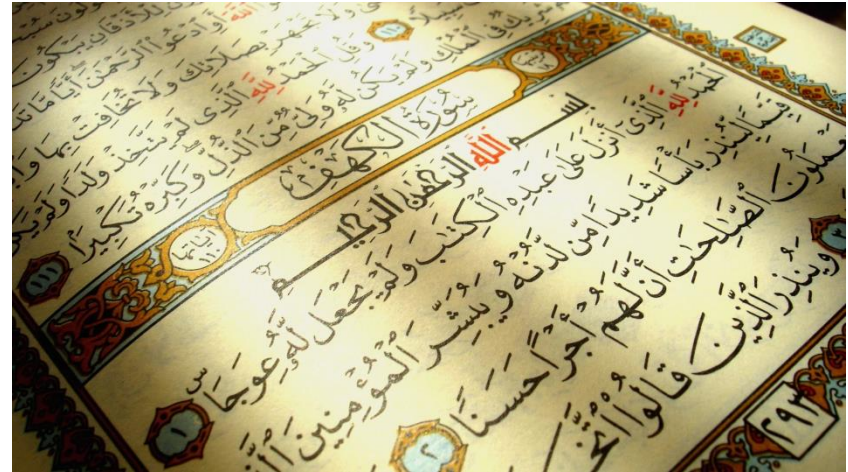 لِلْأَذْقَانِ يَبْكُونَ
ٱللَّهَ أَوِ ٱدْعُوا۟ ٱلرَّحْمَٰنَ أَيًّا مَّا
وَلَا تَجْهَرْ بِصَلَاتِكَ وَلَا تُخَافِتْ بِهَا
١١٠ وَقُلِ ٱلْحَمْدُ لِلَّهِ ٱلَّذِى لَمْ يَتَّخِذْ وَلَدًا وَلَمْ يَكُن
شَرِيكٌ فِى ٱلْمُلْكِ وَلَمْ يَكُن لَّهُۥ وَلِىٌّ مِّنَ ٱلذُّلِّ وَكَبِّرْهُ تَكْبِيرًۢا ١١١
سُورَةُ الْكَهْفِ
بِسْمِ ٱللَّهِ ٱلرَّحْمَٰنِ ٱلرَّحِيمِ
ٱلْحَمْدُ لِلَّهِ ٱلَّذِىٓ أَنزَلَ عَلَىٰ عَبْدِهِ ٱلْكِتَٰبَ وَلَمْ يَجْعَل لَّهُۥ عِوَجَا ۜ ١
قَيِّمًا لِّيُنذِرَ بَأْسًا شَدِيدًا مِّن لَّدُنْهُ وَيُبَشِّرَ ٱلْمُؤْمِنِينَ
يَعْمَلُونَ ٱلصَّٰلِحَٰتِ أَنَّ لَهُمْ أَجْرًا حَسَنًا ٢
٣ وَيُنذِرَ ٱلَّذِينَ قَالُوا۟
٢٩٣